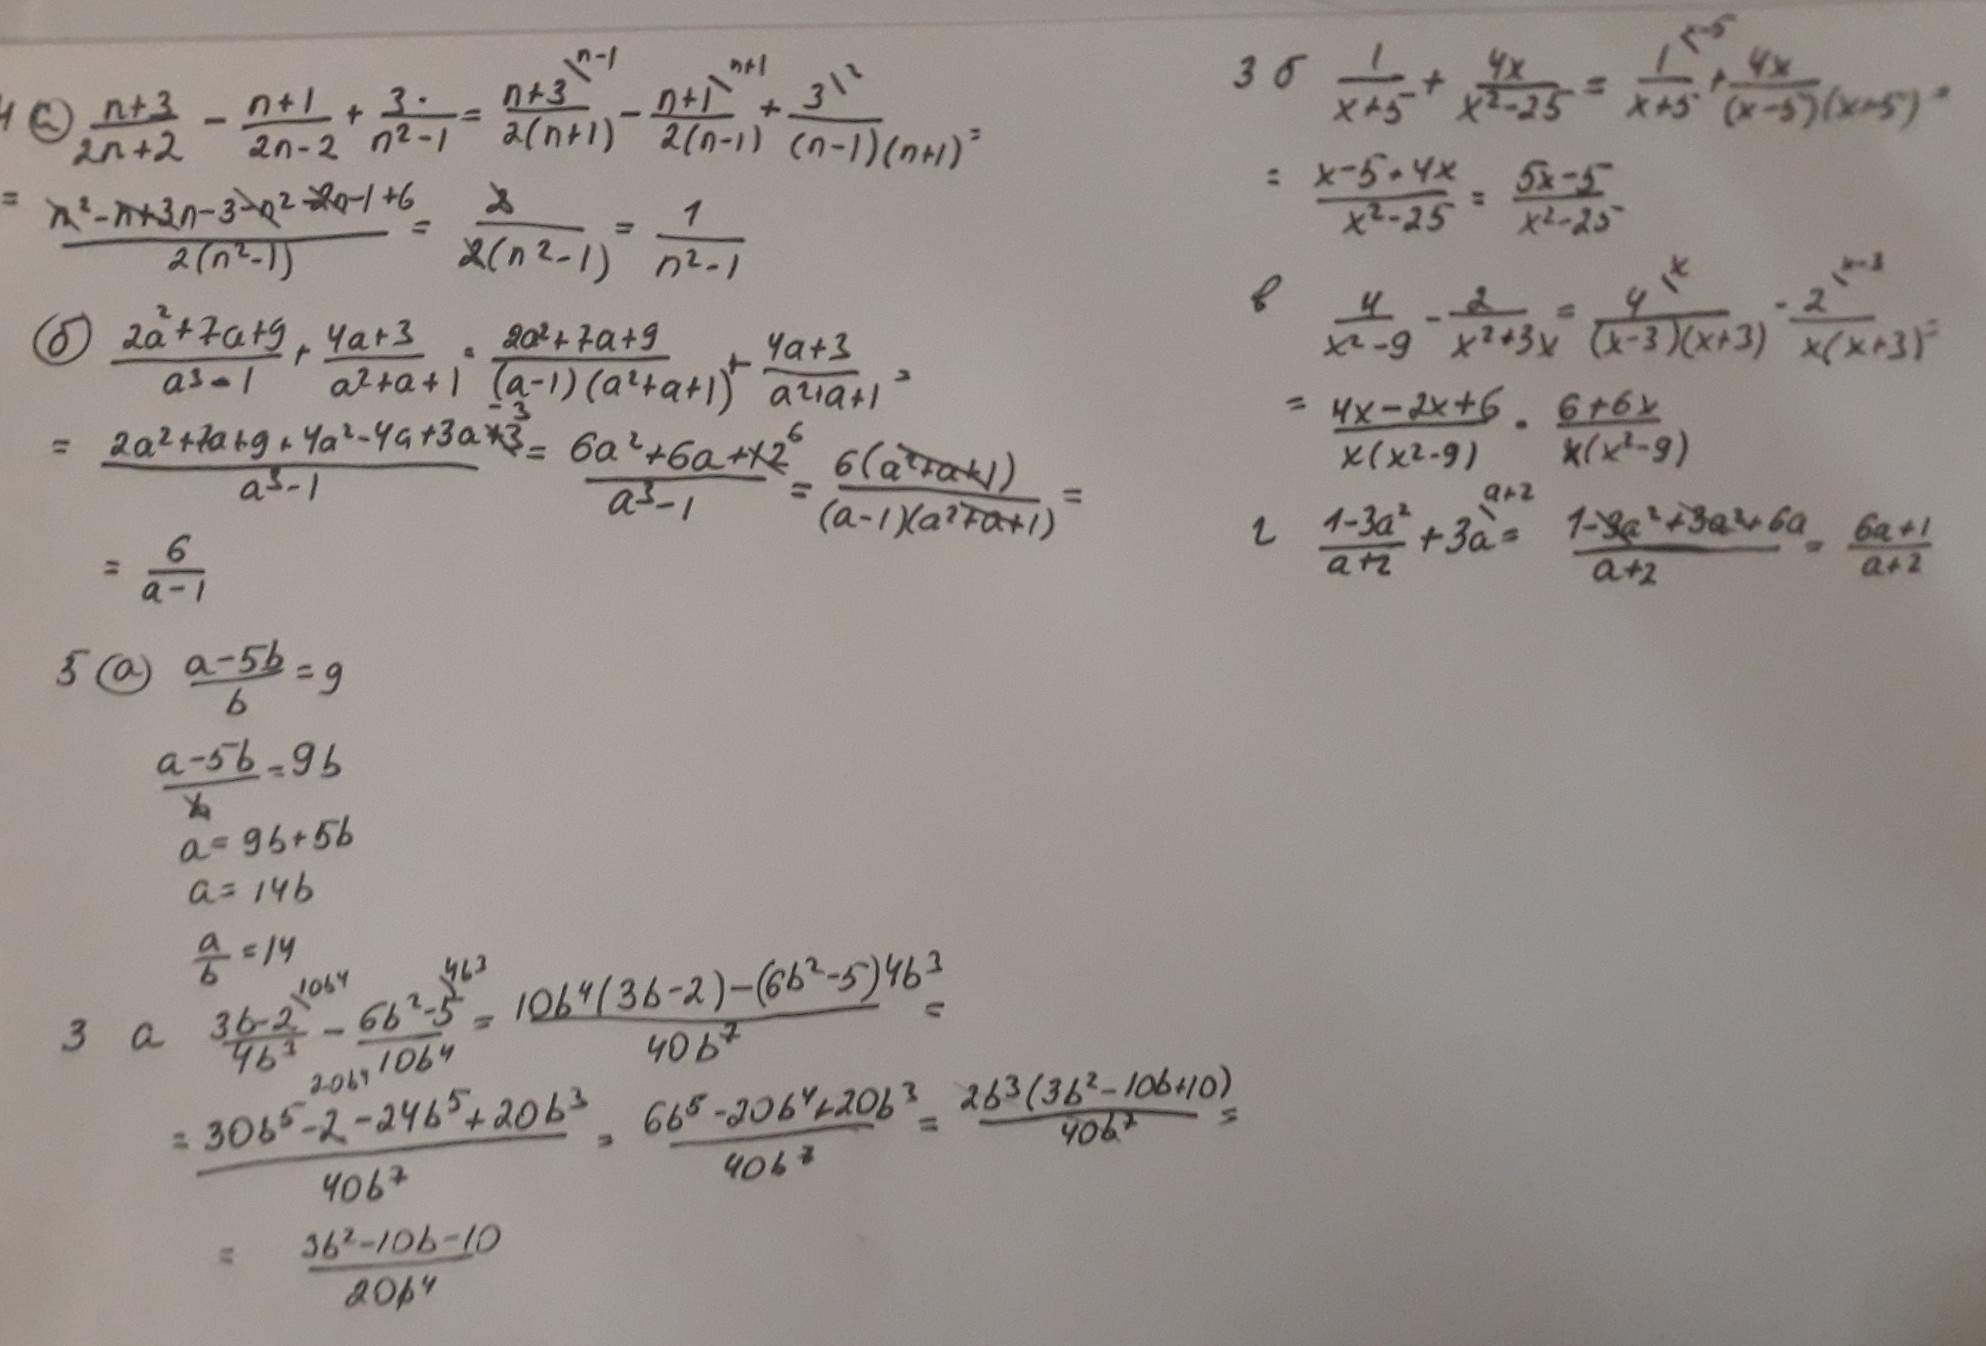 4 а) (n+3)/(2n+2) - (n+1)/(2n-2) + 3/(n²-1) = (n+3)\ⁿ⁻¹/(2(n+1)) - (n+1)\ⁿ⁺¹/(2(n-1)) + 3\²/((n-1)(n+1)) =
= (n²-n+3n-3-n²-2n-1+6)/(2(n²-1)) = 2/(2(n²-1)) = 1/(n²-1)
б) (2a²+7a+9)/(a³-1) + (4a+3)/(a²+a+1) = (2a²+7a+9)/((a-1)(a²+a+1)) + (4a+3)/(a²+a+1) =
= (2a²+7a+9+4a²-4a+3a-3)/(a³-1) = (6a²+6a+6)/(a³-1) = 6(a²+a+1)/((a-1)(a²+a+1)) =
= 6/(a-1)
5 а) (a-5b)/b = 9
(a-5b)/b = 9b
a = 9b+5b
a = 14b
a/b = 14
3 а (3b-2)\10b⁴/(4b³) - (6b²-5)\4b³/(10b⁴) = (10b⁴(3b-2)-(6b²-5)4b³)/(40b⁷) =
20b⁴
= (30b⁵-2-24b⁵+20b³)/(40b⁷) = (6b⁵-20b⁴+20b³)/(40b⁷) = 2b³(3b²-10b+10)/(40b⁷) =
= (3b²-10b-10)/(20b⁴)
3 б 1/(x+5) + 4x/(x²-25) = 1\ˣ⁻⁵/(x+5) + 4x/((x-5)(x+5)) =
= (x-5+4x)/(x²-25) = (5x-5)/(x²-25)
в 4/(x²-9) - 2/(x²+3x) = 4\ˣ/((x-3)(x+3)) - 2\ˣ⁻³/(x(x+3)) =
= (4x-2x+6)/(x(x²-9)) = (6+6x)/(x(x²-9))
г (1-3a²)/(a+2) + 3a\ᵃ⁺² = (1-3a²+3a²+6a)/(a+2) = (6a+1)/(a+2)